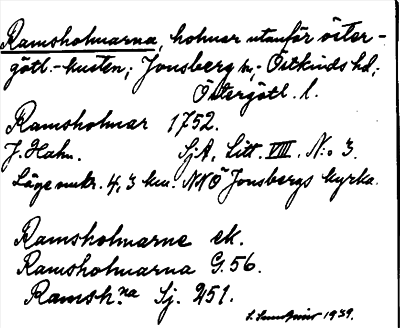 Ramsholmarna, holmar utanför öster-
götl.-kusten; Jonsberg sn, Östkinds hd,
Östergötl. l.
Ramsholmar 1752.
J. Hahn. SjA, Litt. VIII. N:o 3.
Läge omkr. 4,3 km. NNÖ Jonsbergs kyrka.
Ramsholmarne ek.
Ramsholmarna G.56.
Ramsh.na Sj. 251.
1939.